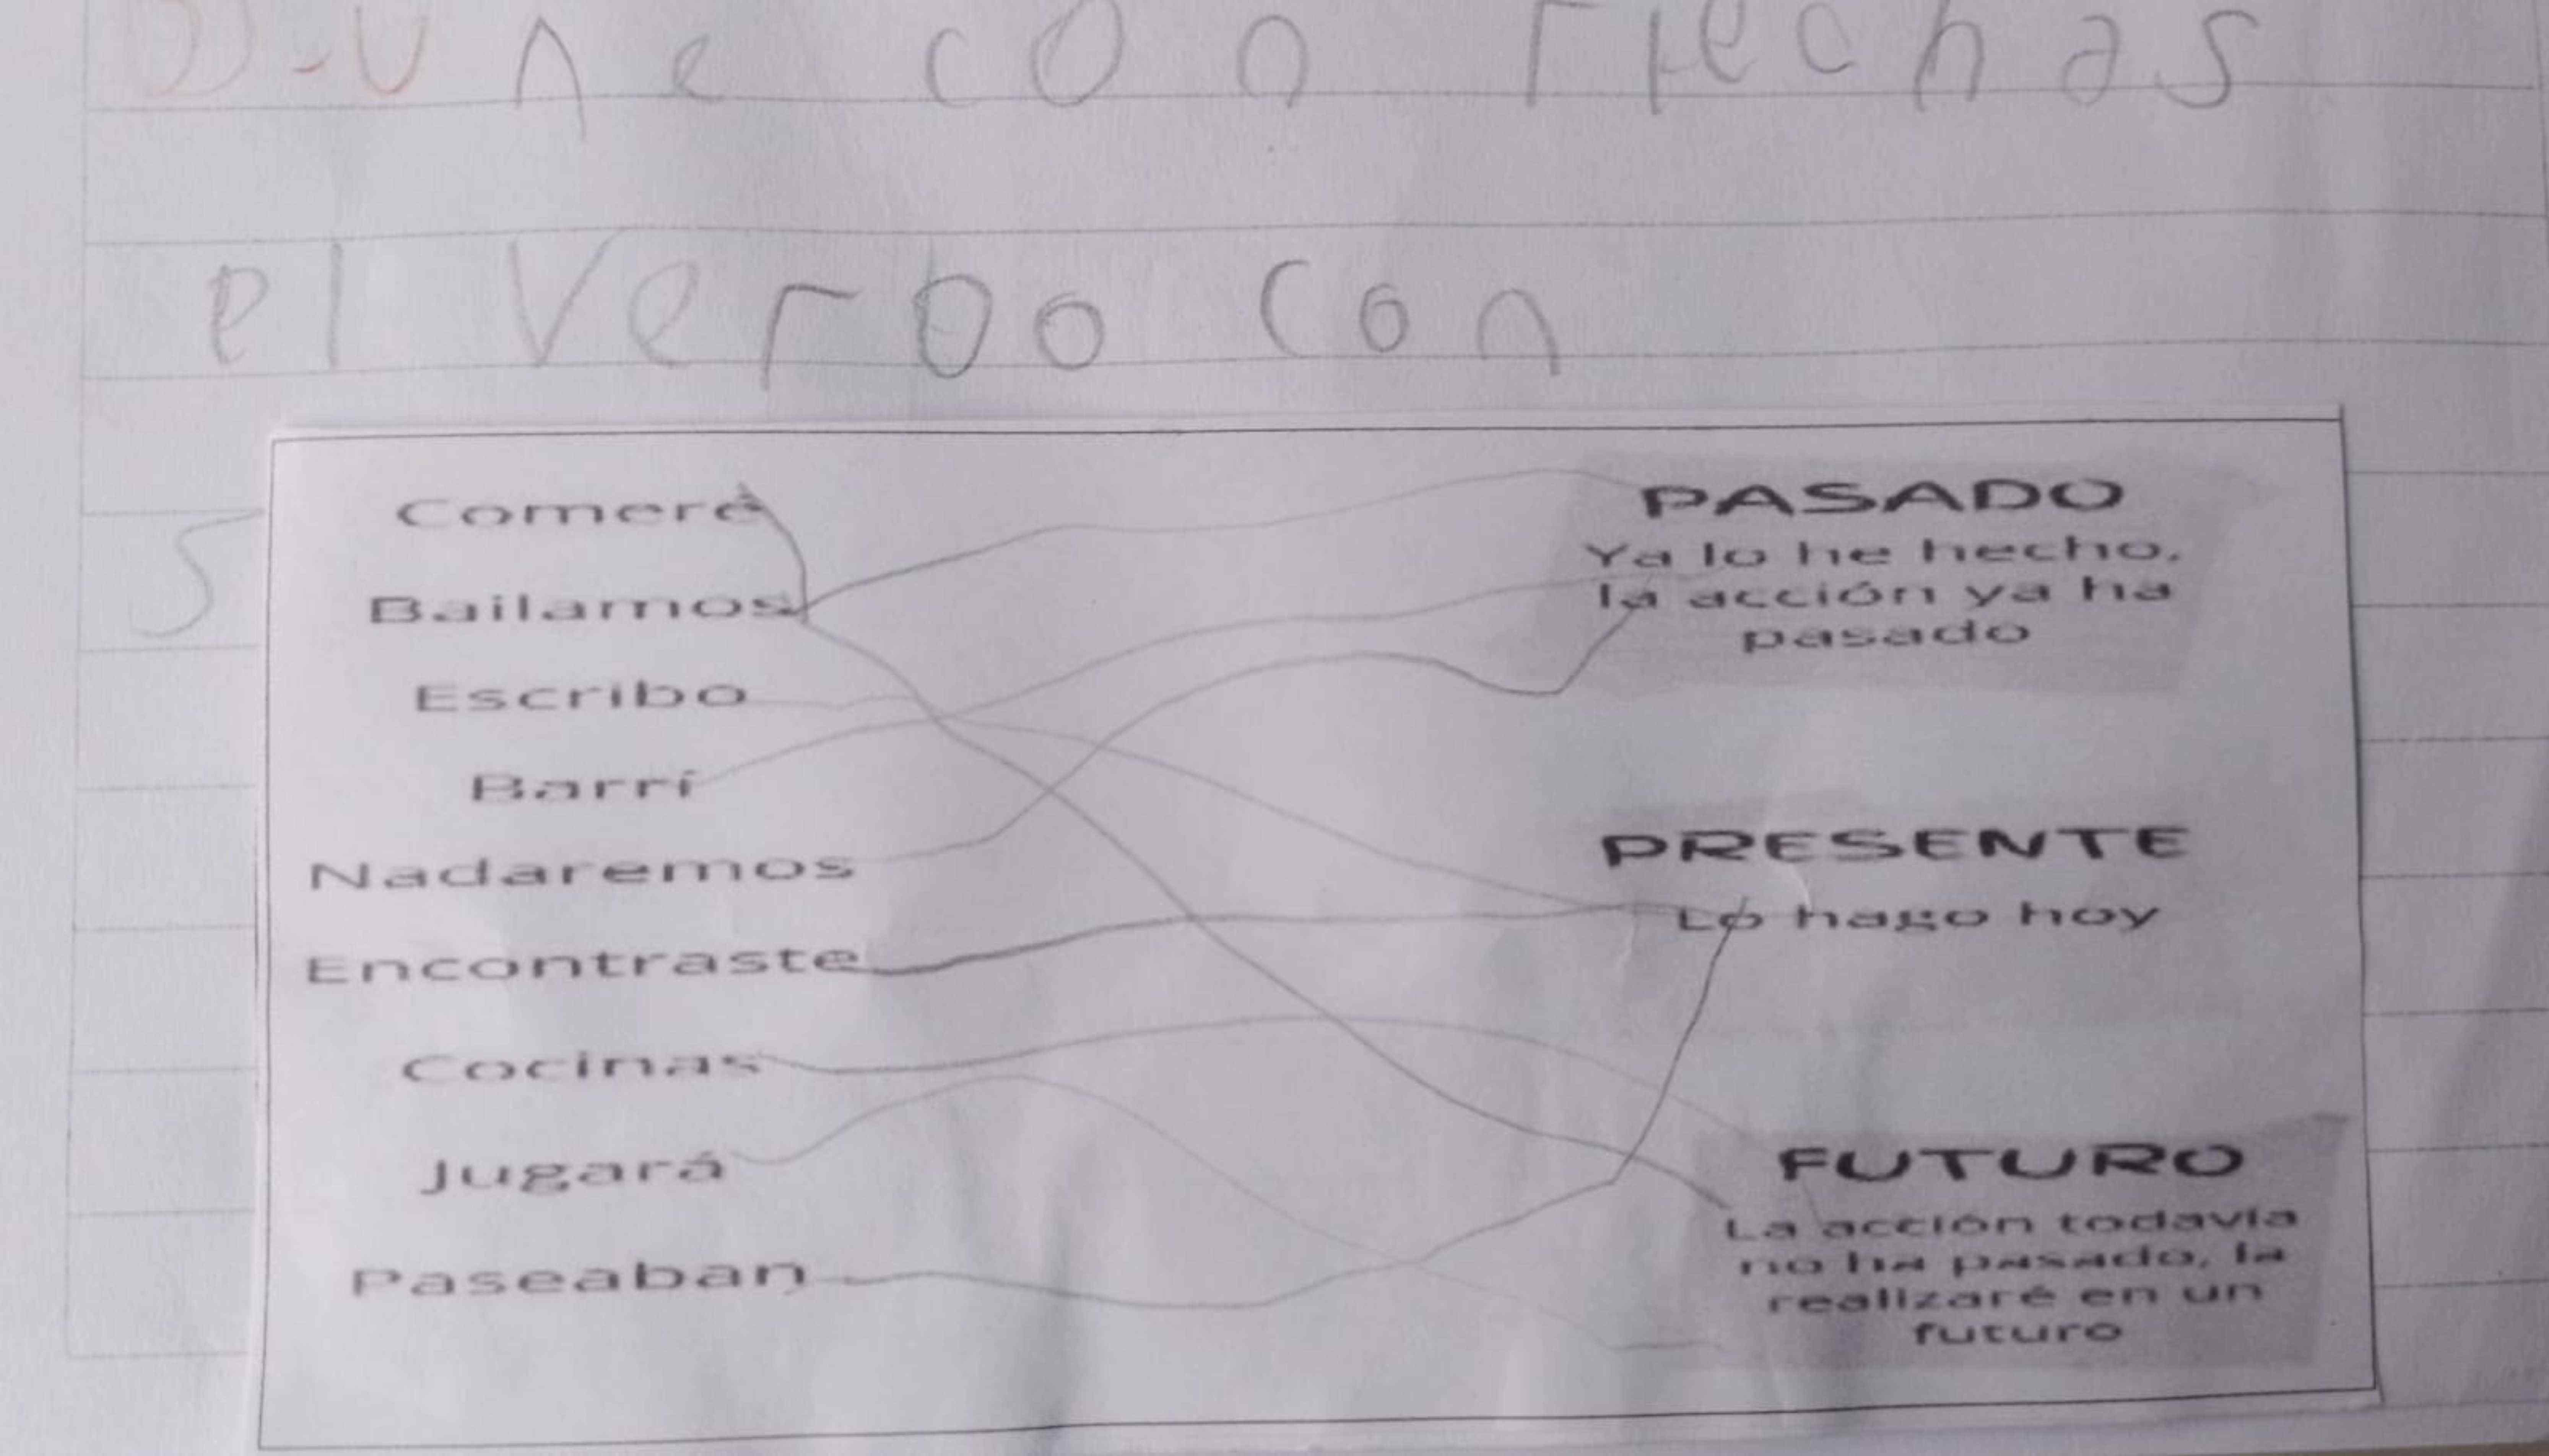 2).-Une con flechas
el verbo con
s
Comeré
Bailamos
Escribo
Barrí
Nadaremos
Encontraste
Cocinas
Jugará
Paseaban
PASADO
Ya lo he hecho,
la acción ya ha
pasado
PRESENTE
Lo hago hoy
FUTURO
La acción todavía
no ha pasado, la
realizaré en un
futuro